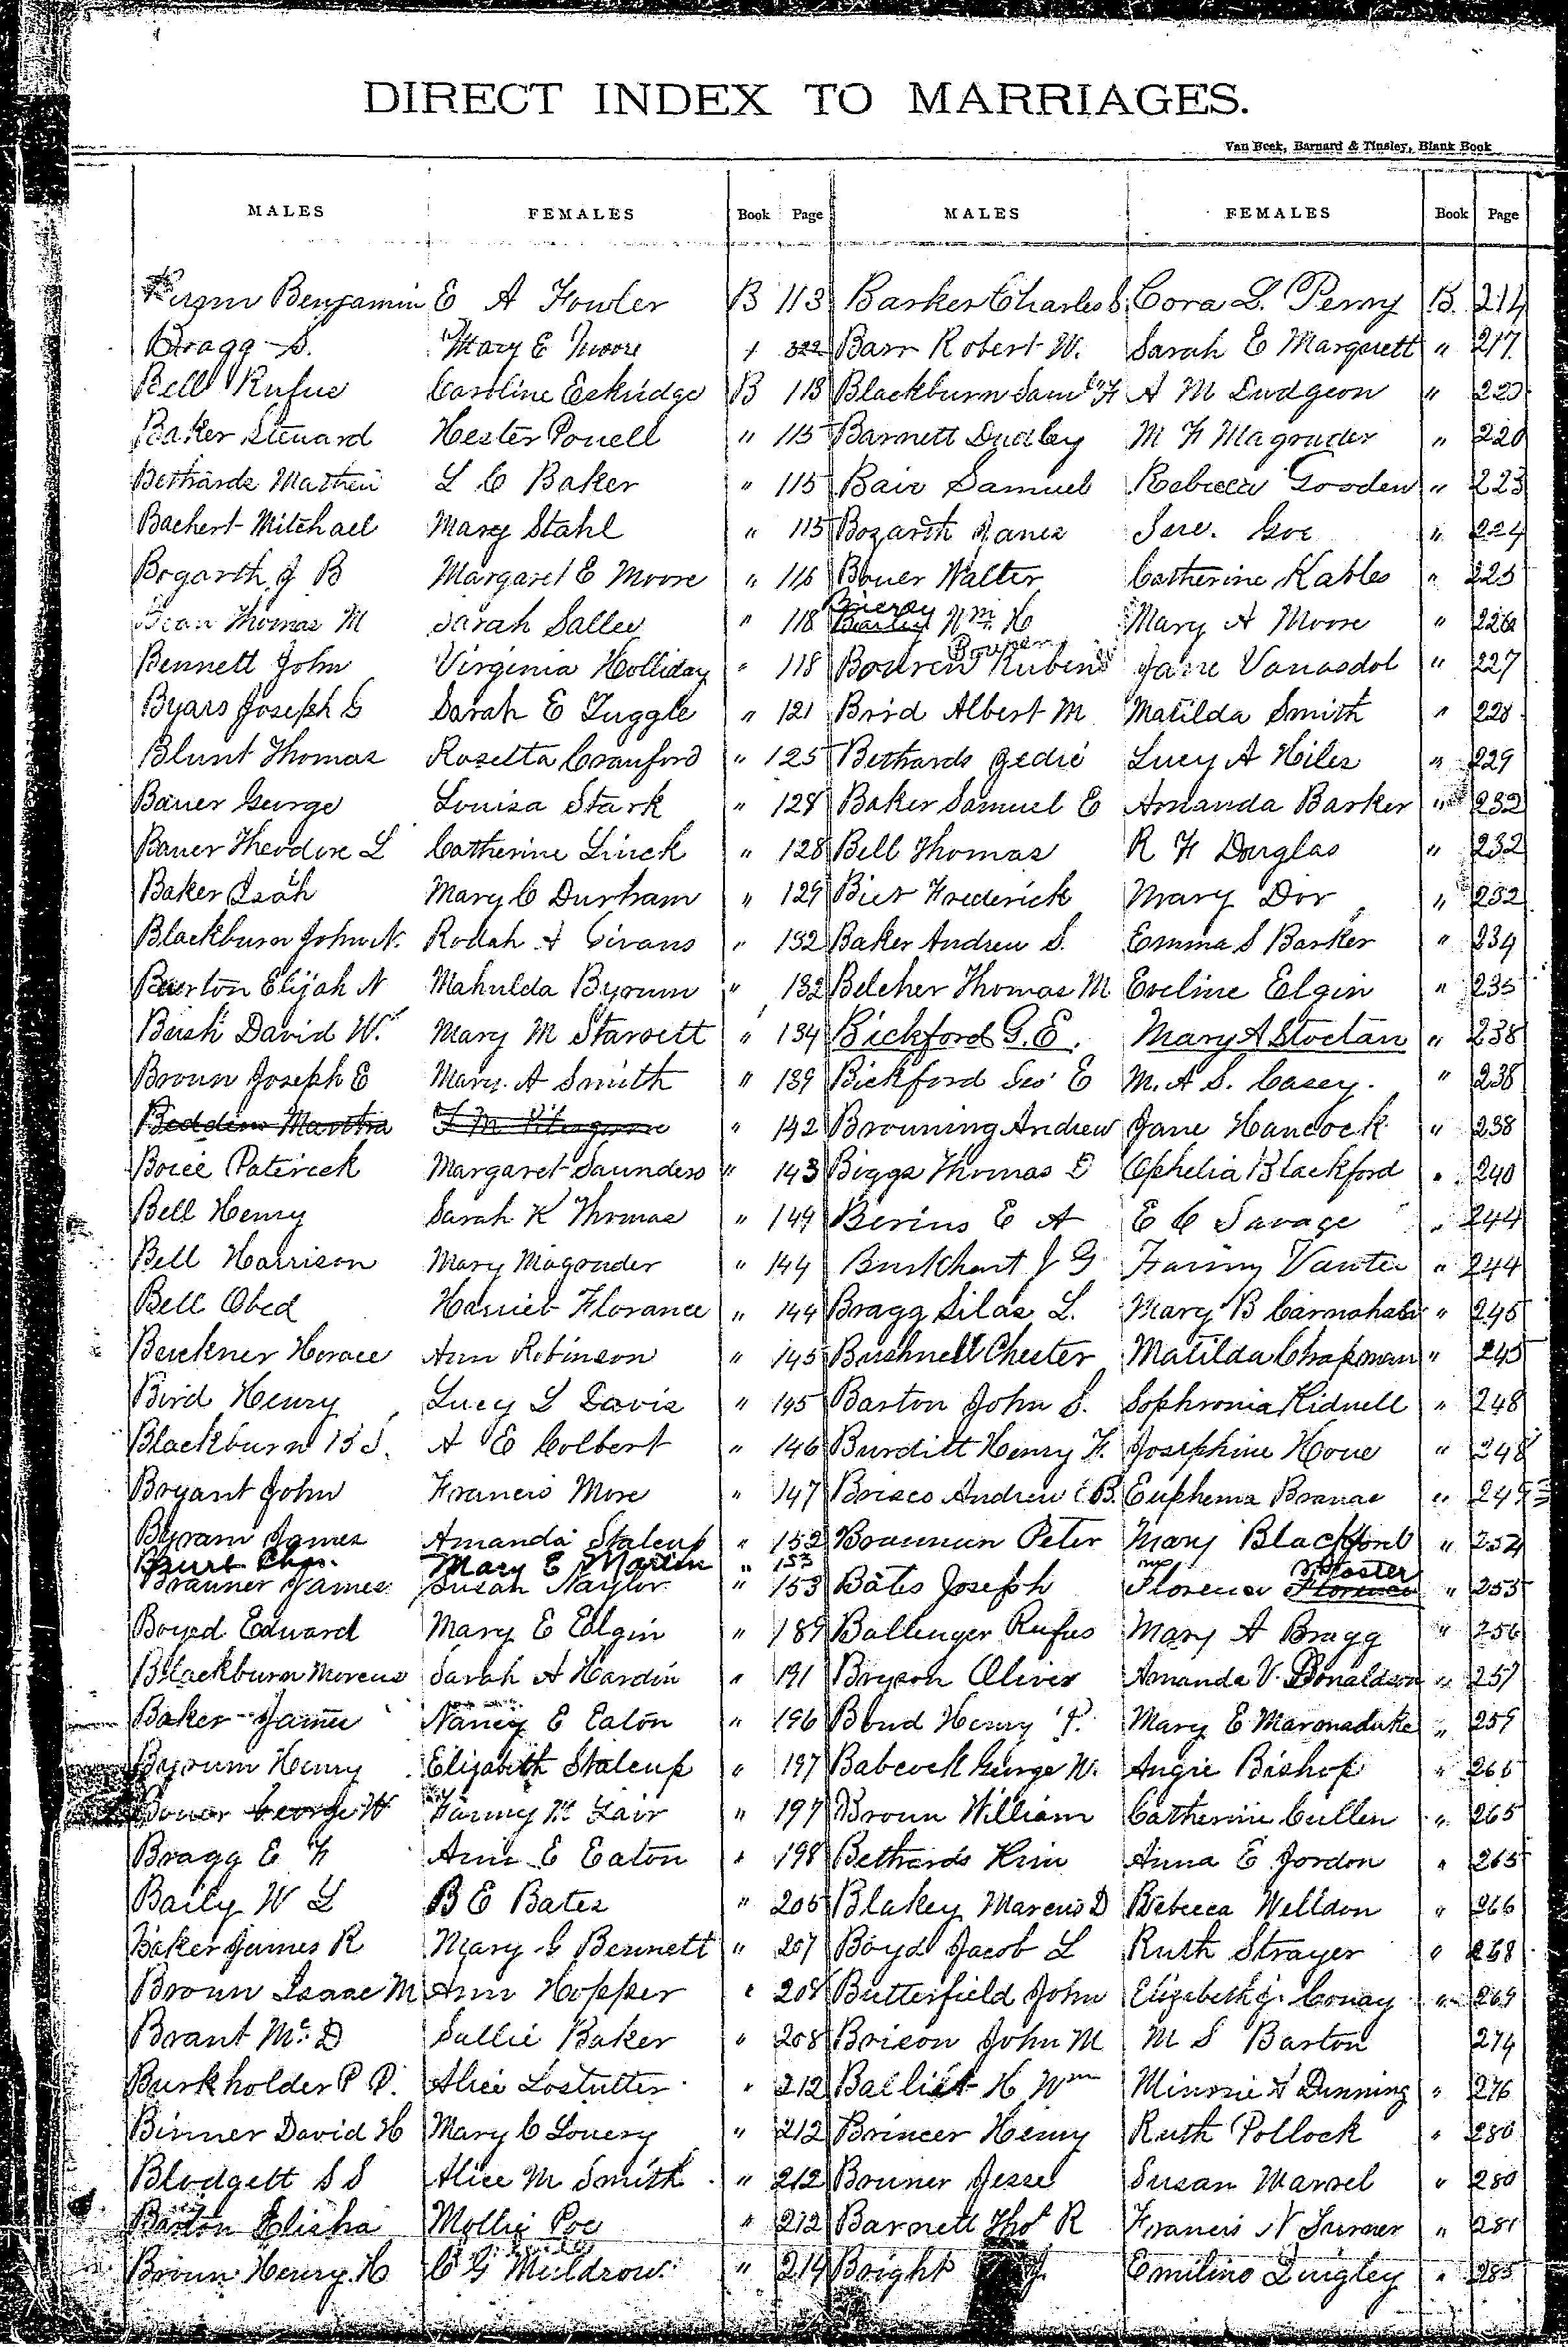 DIRECT INDEX TO MARRIAGES.
Van Beek, Barnard & Tinsley, Blank Book
MALES FEMALES Book Page MALES FEMALES Book Page
Benjamin E A Fowler B 113 Barker Charles Cora L. Perry B. 214
Bragg S. Mary E Moore 322 Barr Robert W. Sarah E Marquett " 217
Bell Rufus Caroline Eskridge B 113 Blackburn A M Dudgeon " 220
Baker Steward Hester Powell " 115 Barnett Dudley M F Magruder " 220
Bethards Mathew L C Baker " 115 Bair Samuel Rebecca Gooden " 223
Bachert Mitchael Mary Stahl " 115 Bozarth James Goe " 224
Bogarth J B Margaret E Moore " 116 Bower Walter Catherine Kables " 225
Bean Thomas M Sarah Sallee " 118 Briersy Wm. H Mary A Moore " 226
Bennett John Virginia Holliday " 118 Rubens Jane Vanasdol " 227
Byars Joseph S Sarah E Tuggle " 121 Brid Albert M Matilda Smith " 228
Blunt Thomas Rosetta Crauford " 125 Bethards Jedie Lucy A Hiles " 229
Bauer George Louisa Stark " 128 Baker Samuel E Amanda Barker " 232
Bauer Theodore L Catherine Linck " 128 Bell Thomas R F Douglas " 232
Baker Mary C Durham " 129 Bier Frederick Mary Dor " 232
Blackburn John N. Rodah A Givans " 132 Baker Andrew S. Emma S Barker " 234
Burton Elijah N Mahulda Byrum " 132 Belcher Thomas M Eveline Elgin " 235
Bush David W. Mary M Starrett " 134 Bickford G. E. Mary A Stoctan " 238
Broun Joseph E Mary A Smith " 139 Bickford Geo E M. A S. Casey. " 238
Martha " 142 Brouning Andrew Jane Hancock " 238
Boice Paterick Margaret Saunders " 143 Biggs Thomas E Ophelia Blackford " 240
Bell Henry Sarah K Thomas " 144 Berins E A E C Savage " 244
Bell Harrison Mary Magruder " 144 Burkhart J G Fanny Vanter " 244
Bell Obed Harriet Florance " 144 Bragg Silas L. Mary B " 245
Buckner Horace Ann Robinson " 145 Bushnell Chester Matilda Chapman " 245
Bird Henry Lucy L Davis " 145 Barton John S. Sophronia Kidwell " 248
Blackburn B S. A E Colbert " 146 Burditt Henry F. Josephine Howe " 248
Bryant John Francis More " 147 Brisco Andrew B. Euphema Branae " 249
Byram James Amanda Stalcup " 152 Brannum Peter Mary Blackford " 252
Burt Chas. Mary E Martin " 153
Branner James Susan Naylor " 153 Bates Joseph Florence Foster " 253
Boyed Edward Mary E Elgin " 189 Ballenger Rufus Mary A Bragg " 256
Blackburn Morcus Sarah A Hardin " 191 Bryson Oliver Amanda V. Donaldson " 257
Baker James Nancy E Eaton " 196 Bond Henry P. Mary E Marmaduke " 259
Byrum Henry Elizabeth Stalcup " 197 Babcock George W. Angie Bishop "
George W Fanny Mc Lair " 197 Broun William Catherine Cullen " 265
Bragg E F Ann E Eaton " 198 Bethards Hrim Anna E Jordon " 265
Baily W L B E Bates " 205 Blakey Marcus D Rebecca Welldon " 266
Baker James R Mary G Bennett " 207 Boyd Jacob L Ruth Strayer " 268
Broun Isaac M Ann Hopper " 208 Butterfield John Elizabeth J. Conay " 269
Brant Mc. D Sallie Baker " 208 Brison John M M S Barton 274
Burkholder P P. Alice Lostutter " 212 H Wm Minnie A Dunning " 276
Binner David H Mary C Lowery " 212 Brincer Henry Ruth Pollock " 280
Blodgett S S Alice M Smith " 212 Bruner Jesse Susan Marrel " 280
Barton Elisha Mollie Poe " 212 Barnett Thos R Francis N Turner " 281
Broun Henry H C G Muldrow " 214 Bright J. Emiline Lingley " 285